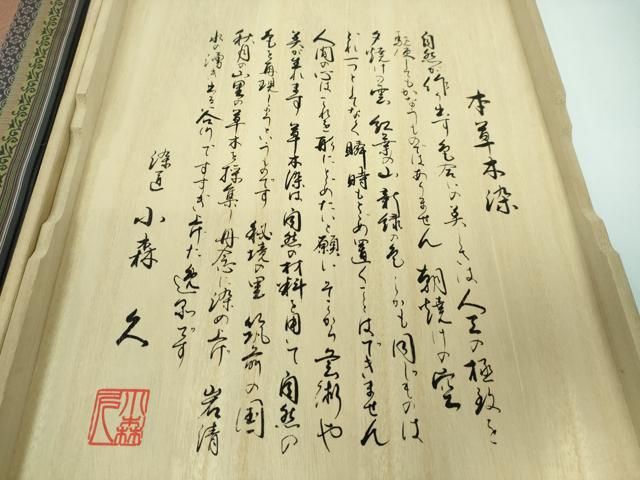 本草木染
自然が作り出す色合いの美しさは人工の極致を
駆使してもかなうものではありません 朝焼けの空
夕焼けの雲 紅葉の山 新緑の色 しかも同じものは
どれ一つとしてなく 瞬時もとどめ置くことはできません
人間の心はこれを形にとどめたいと願い そこから芸術や
美が生れます 草木染は自然の材料を用いて自然の
色を再現しようというものです 秘境の里 筑前の国
秋月の山里の草木を採集し 丹念に染め上げ 岩清
水の湧き出る谷川ですすぎ上げた逸品です
染匠 小森 久
小森久